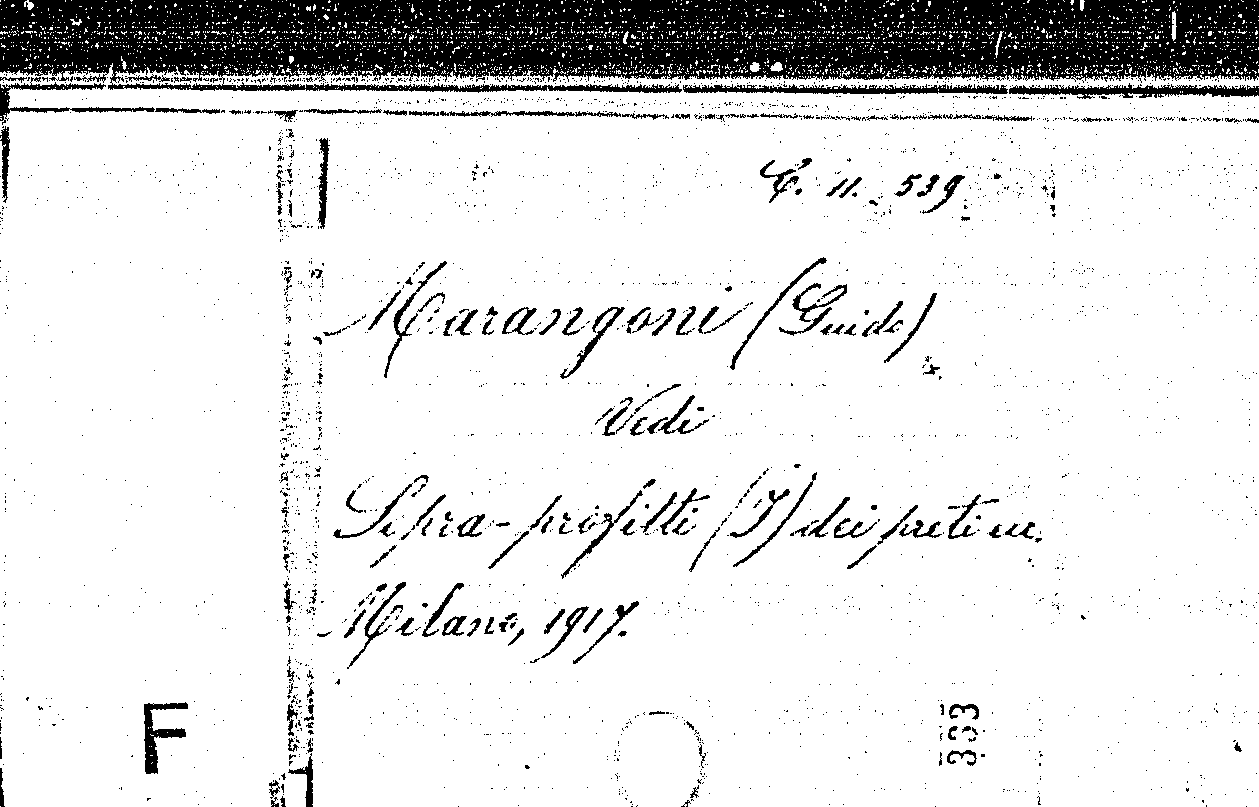 C. 11. 539
Marangoni (Guido)
Vedi
Sopra-profitti (I) dei preti ecc.
Milano, 1917.
F
333